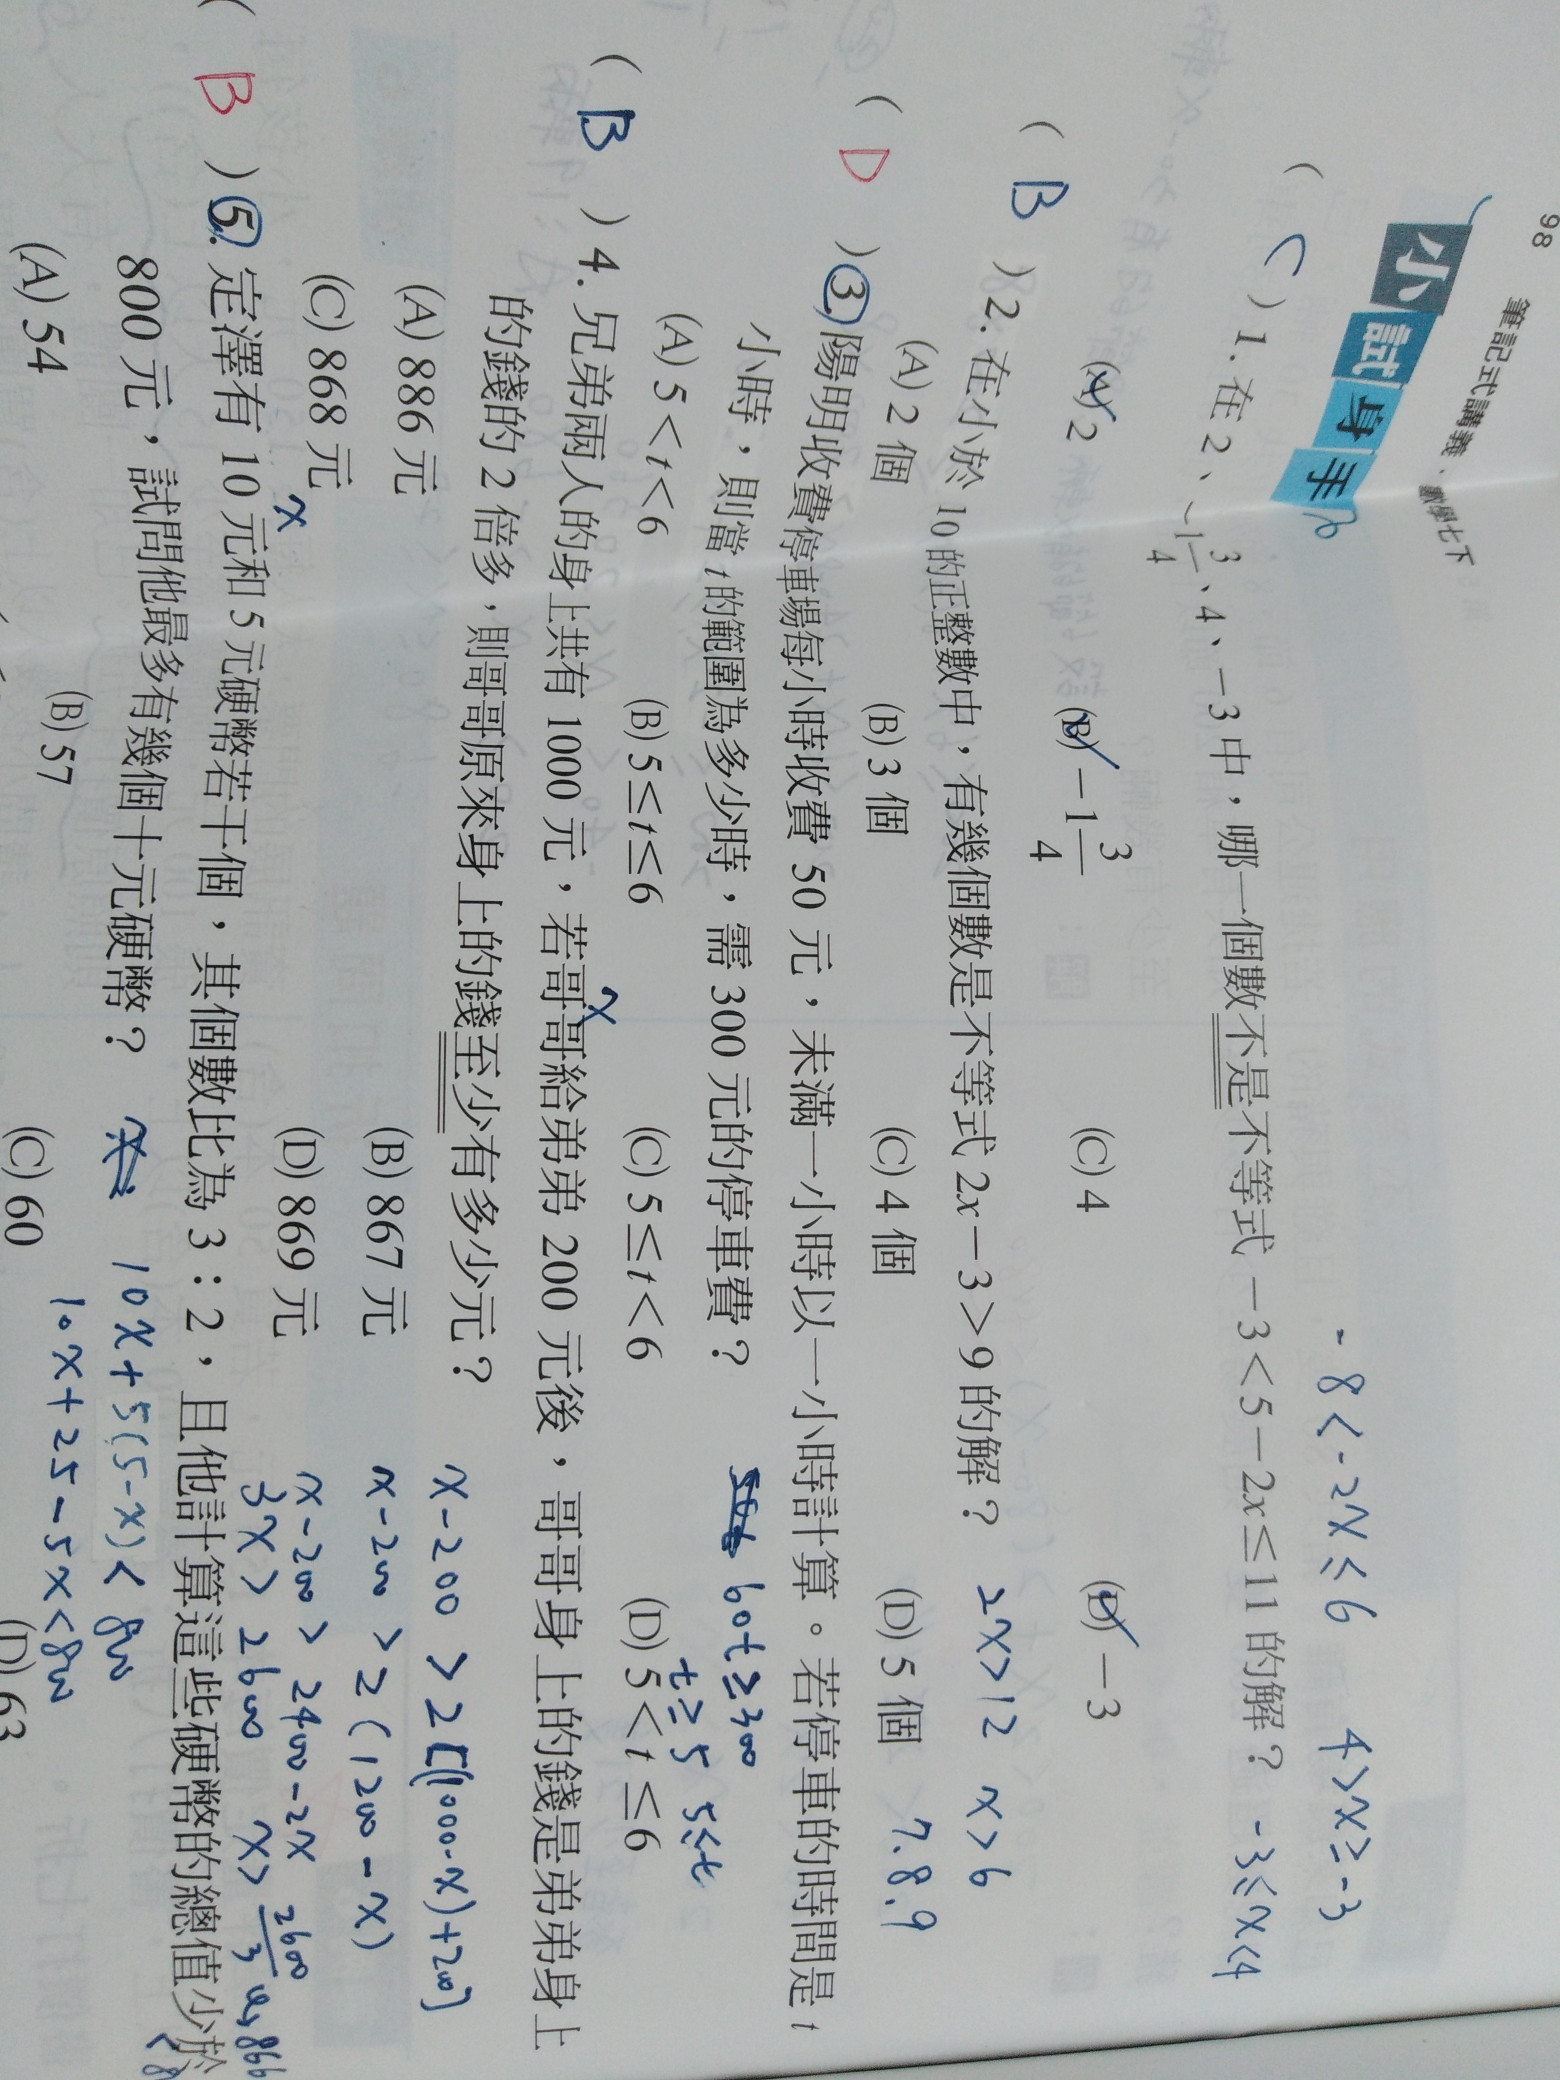 98 筆記式講義、數學七下
小試身手
( C ) 1. 在 2、-1 3/4、4、-3 中，哪一個數不是不等式 -3<5-2x≤11 的解？
-8<-2x≤6 4>x≥-3
-3≤x<4
(A) 2 (B) -1 3/4 (C) 4 (D) -3
( B ) 2. 在小於 10 的正整數中，有幾個數是不等式 2x-3>9 的解？ 2x>12 x>6
(A) 2 個 (B) 3 個 (C) 4 個 (D) 5 個 7.8.9
( D ) 3. 陽明收費停車場每小時收費 50 元，未滿一小時以一小時計算。若停車的時間是 t
小時，則當 t 的範圍為多少時，需 300 元的停車費？ 60t≥300
t≥5 5≤t
(A) 5<t<6 (B) 5≤t≤6 (C) 5≤t<6 (D) 5<t≤6
( B ) 4. 兄弟兩人的身上共有 1000 元，若哥哥給弟弟 200 元後，哥哥身上的錢是弟弟身上
x
的錢的 2 倍多，則哥哥原來身上的錢至少有多少元？ x-200>2[(1000-x)+200]
(A) 886 元 (B) 867 元 x-200>2(1200-x)
(C) 868 元 (D) 869 元 x-200>2400-2x
3x>2600 x>2600/3
x
( B ) 5. 定澤有 10 元和 5 元硬幣若干個，其個數比為 3：2，且他計算這些硬幣的總值少於
800 元，試問他最多有幾個十元硬幣？ 10x+5(5-x)<800
10x+25-5x<800
(A) 54 (B) 57 (C) 60 (D) 63